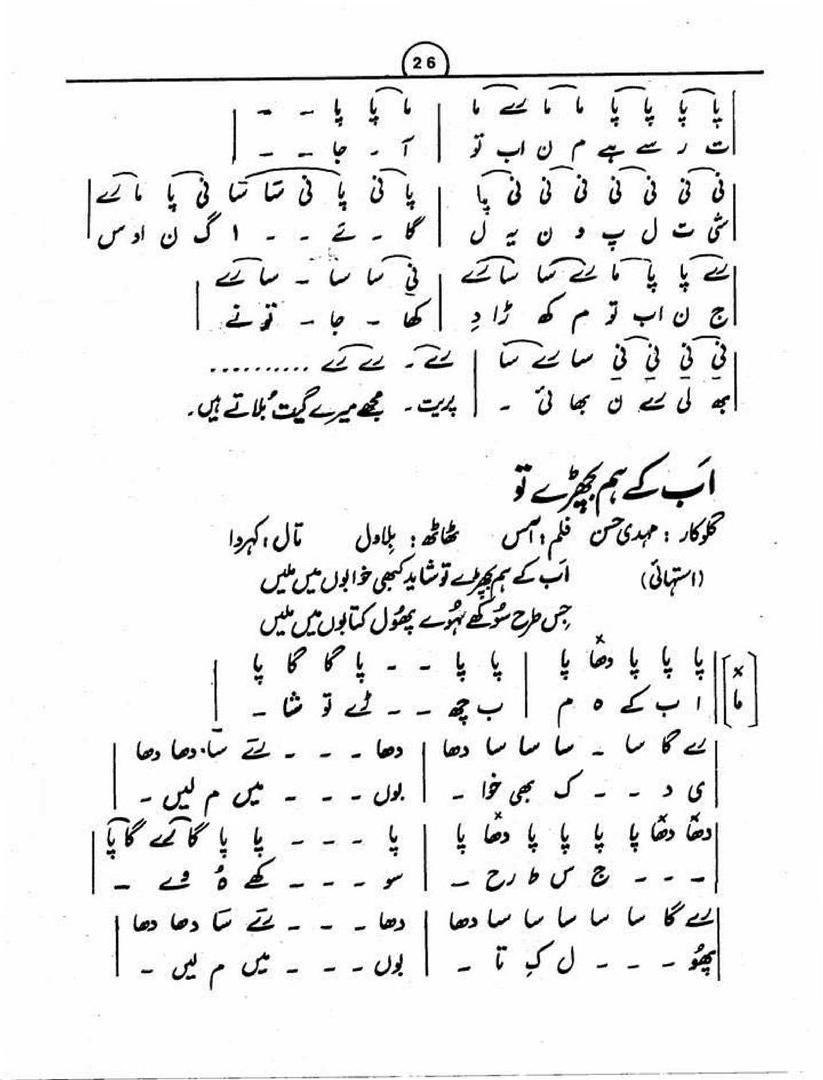 26
پا پا پا پا ما ما رے ما | ما پا پا - -
ت ر سے ہے م ن اب تو | آ - جا - -
نی نی نی نی نی نی نی پا | پا نی پا نی سا سا نی پا ما رے
شی ت ل پ و ن یہ ل | گا - ئے - - ا گ ن اوس
رے پا پا ما رے سا سا رے | نی سا سا - سا رے
ج ن اب تو م کھ ڑا دِ | کھا - جا - تو نے
نی نی نی نی سا رے سا | رے - رے رے ..........
بھ لی رے ن بھا ئی - | پریت - مجھے میرے گیت بُلاتے ہیں -
اَب کے ہم بچھڑے تو
گلوکار : مہدی حسن فلم : اَسمس ٹھاٹھ : بِلاول تال : کہروا
(استہائی) اَب کے ہم بچھڑے تو شاید کبھی خوابوں میں ملیں
جِس طرح سُوکھے ہُوۓ پھُول کتابوں میں ملیں
[ما] پا پا پا دھا پا | پا پا - - پا گا گا پا
ا ب کے ہ م | ب چھ - - ڑے تو شا -
رے گا سا - سا سا سا دھا | دھا - - - رے سا دھا دھا
ی د - - ک بھی خوا - | بوں - - - میں م لیں -
دھا دھا پا پا پا پا دھا پا | پا - - - پا پا گا رے گا پا
- - - ج س ط رح - | سو - - - کھے ہُ وے -
رے گا سا سا سا سا سا دھا | دھا - - - رے سا دھا دھا
پھُو - - - ل کِ تا - | بوں - - - میں م لیں -